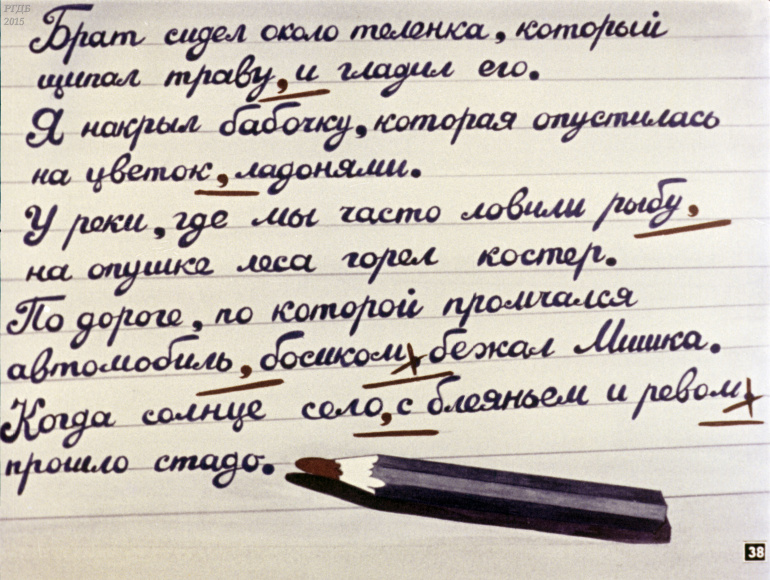 РГДБ
2015
Брат сидел около теленка, который
щипал траву, и гладил его.
Я накрыл бабочку, которая опустилась
на цветок, ладонями.
У реки, где мы часто ловили рыбу,
на опушке леса горел костер.
По дороге, по которой промчался
автомобиль, босиком, бежал Мишка.
Когда солнце село, с блеяньем и ревом,
прошло стадо.
38